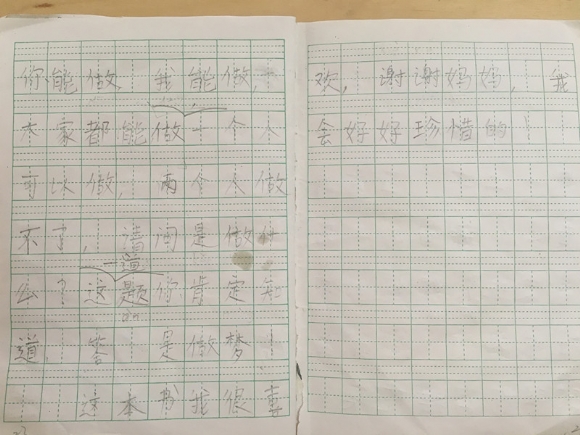 你能做 我能做,
大家都能做一个人
可以做,两个人做
不了,请问是做什
一道
么?这题你肯定知
道,答 是做梦!
这本书我很喜
欢,谢谢妈妈,我
会好好珍惜的!